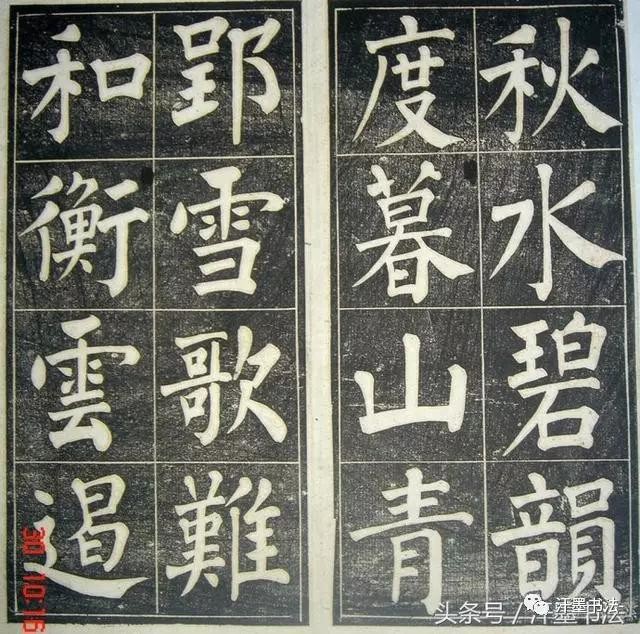 秋水碧韻
度暮山青
郢雪歌難
和衡雲遏
30 10:16
头条号/汗墨书法
汗墨书法